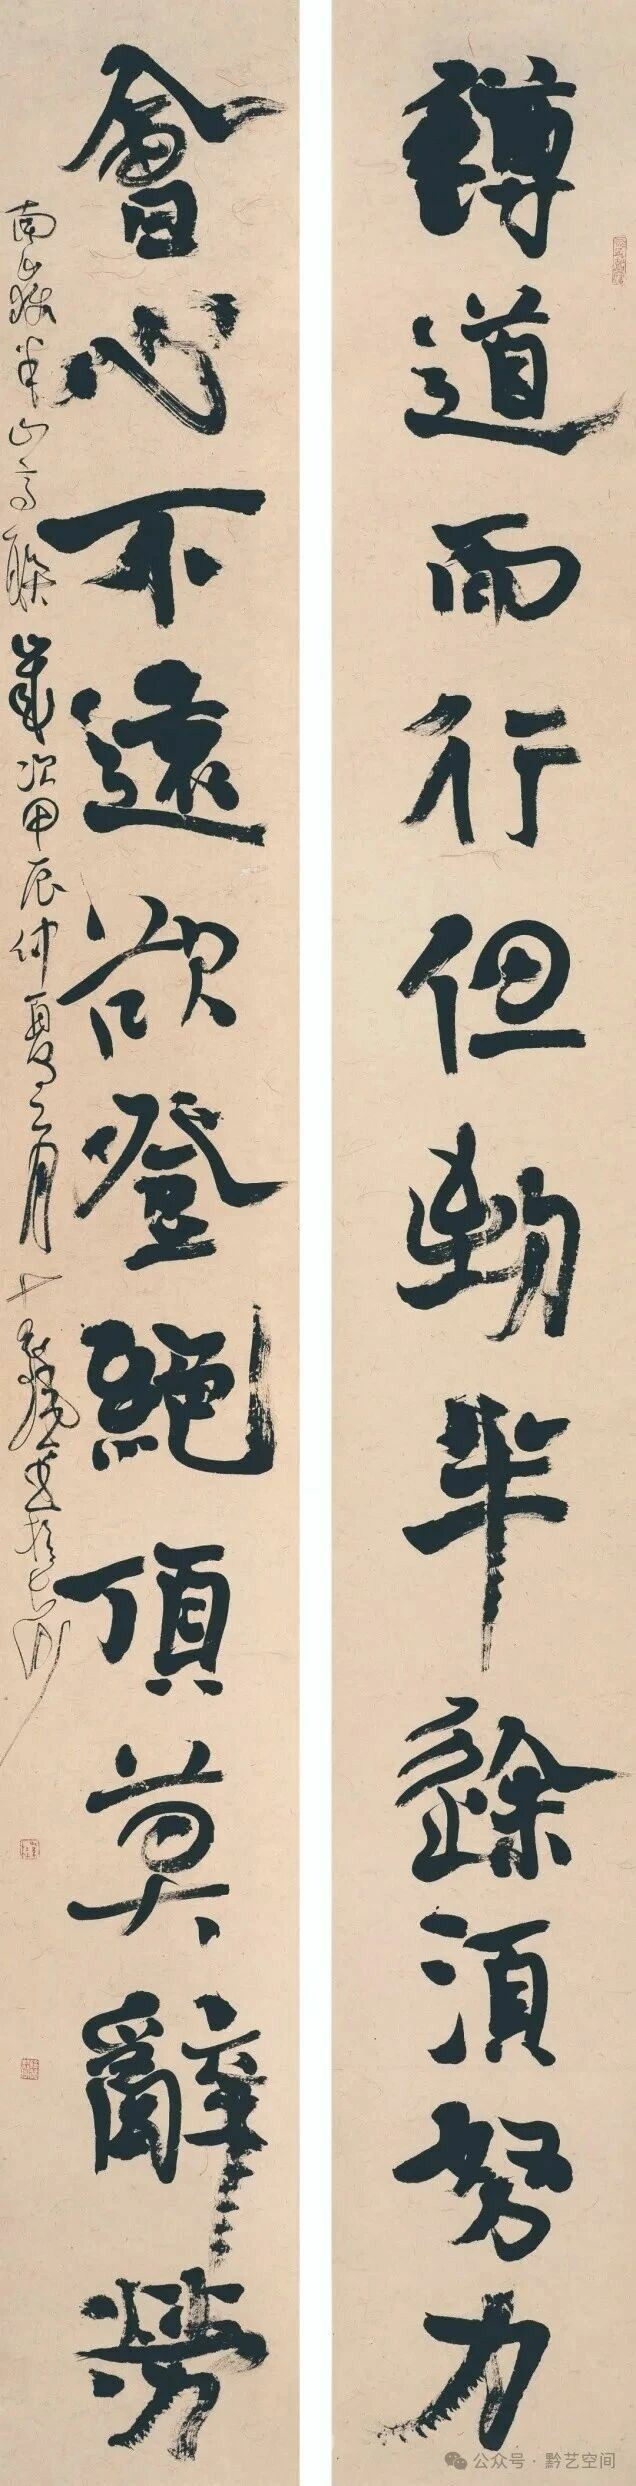 遵道而行但到半途須努力
會心不遠欲登絕頂莫辭勞
南嶽半山亭聯歲次甲辰仲夏
公众号 · 黔艺空间